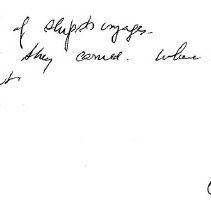 of ships voyages.
they carried. when
to